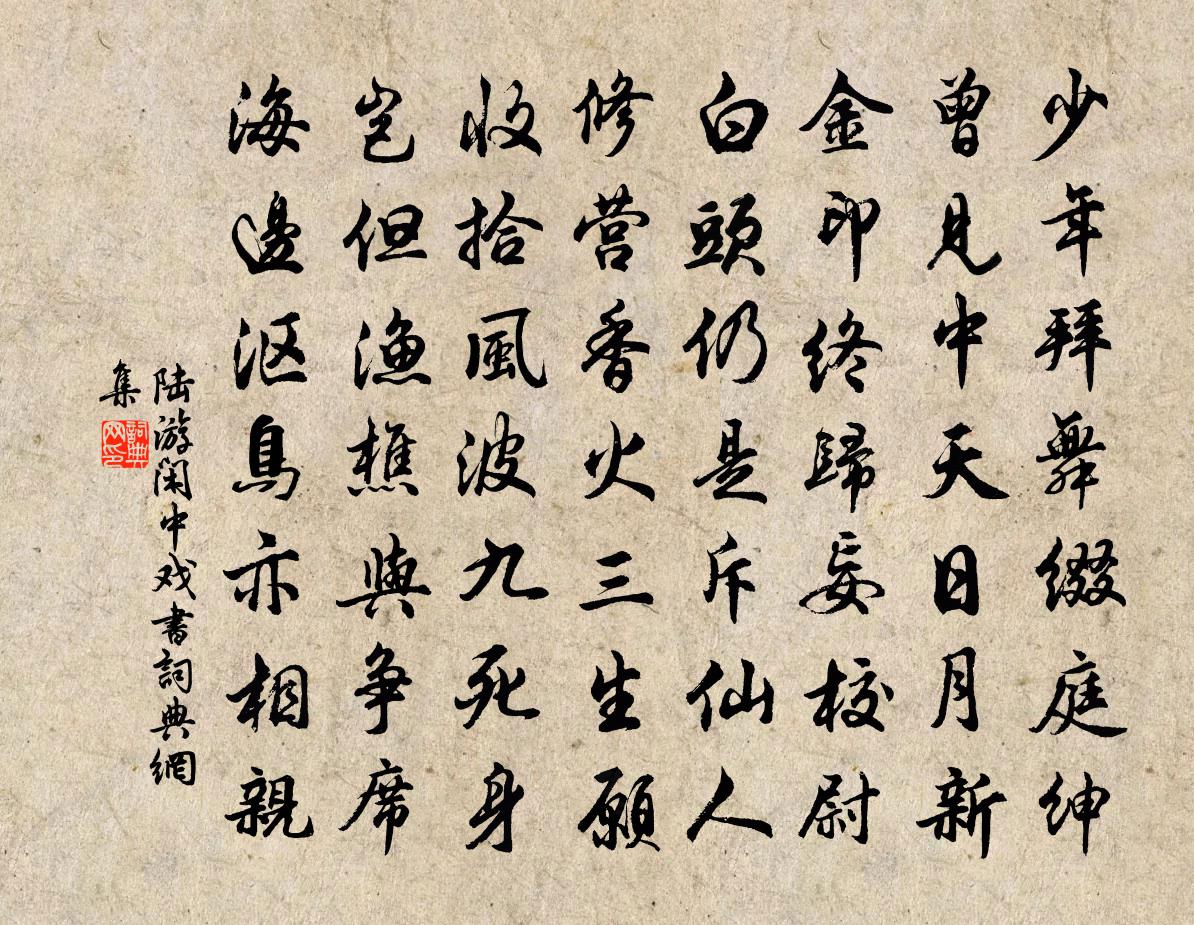 少年拜舞綴庭紳
曾見中天日月新
金印終歸妄校尉
白頭仍是斥仙人
修營香火三生願
收拾風波九死身
豈但漁樵與争席
海邊漚鳥亦相親
陆游闲中戏書詞典網
集
詞典
网印